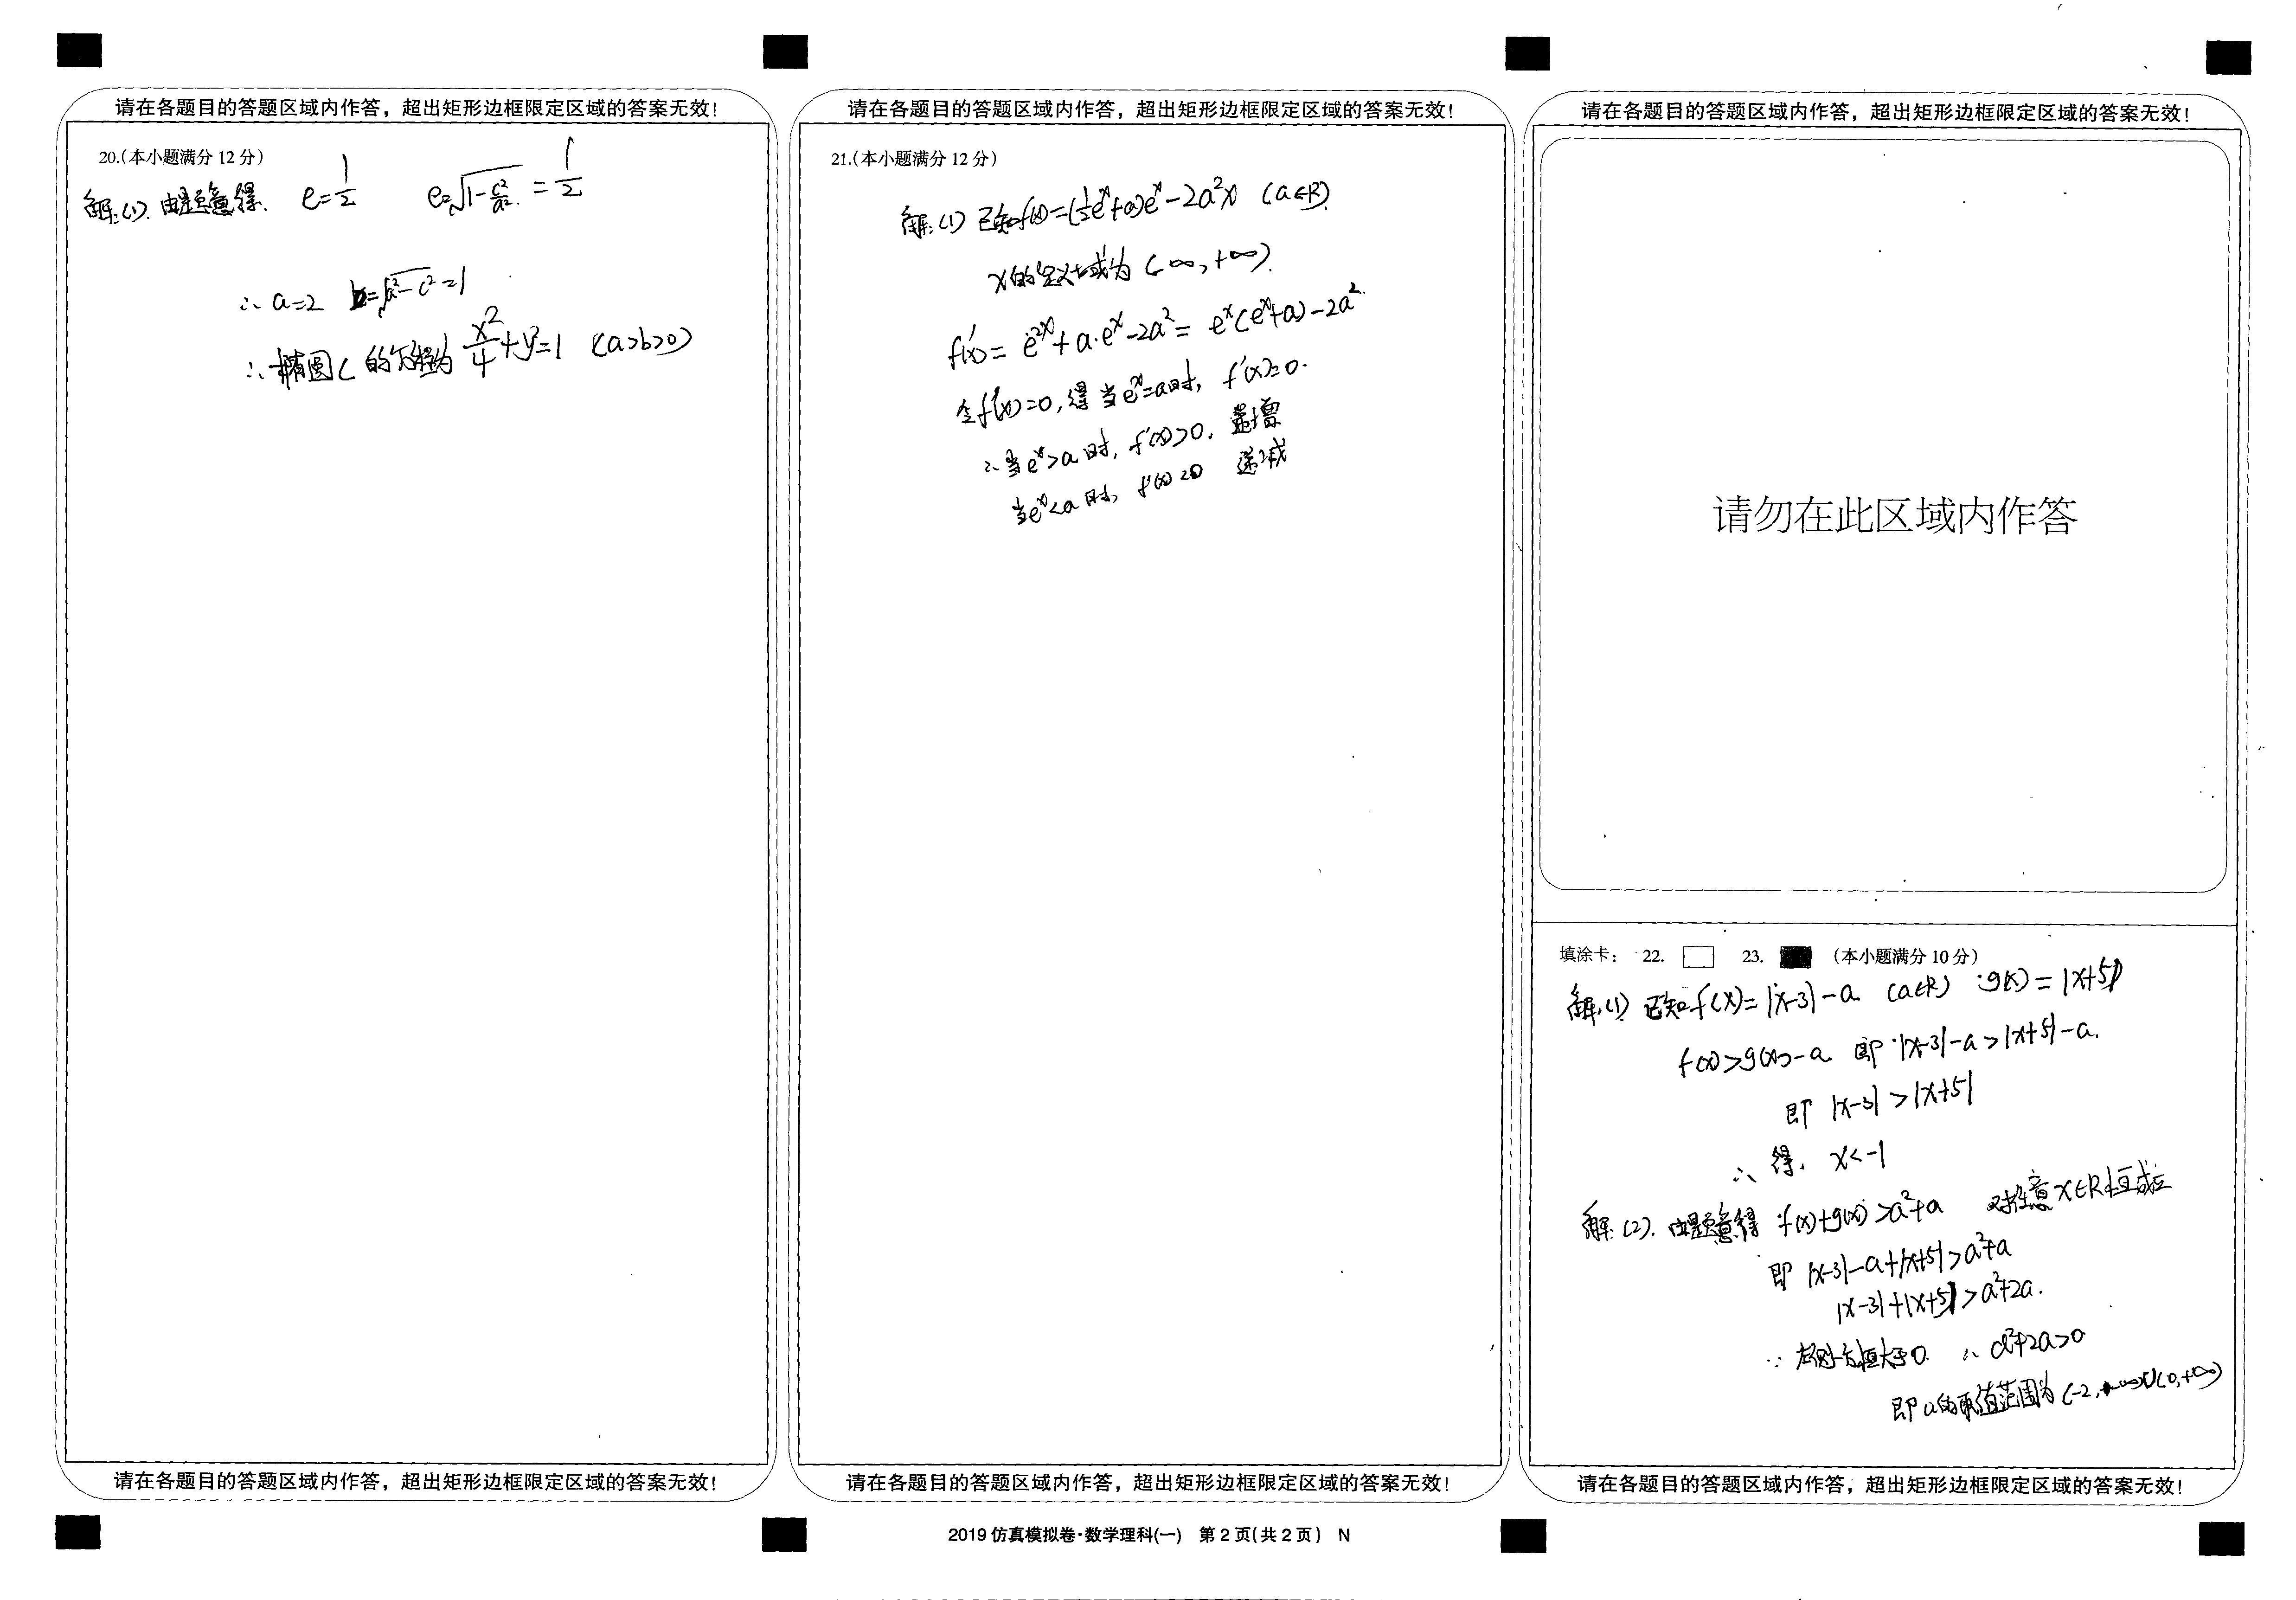 请在各题目的答题区域内作答，超出矩形边框限定区域的答案无效！
20.(本小题满分 12 分)
解:(1). 由题意得. e=1/2 e=√(1-c²/a²)=1/2
∴ a=2 b=√(a²-c²)=1
∴ 椭圆C的方程为 x²/4+y²=1 (a>b>0)
请在各题目的答题区域内作答，超出矩形边框限定区域的答案无效！
请在各题目的答题区域内作答，超出矩形边框限定区域的答案无效！
21.(本小题满分 12 分)
解:(1) 已知f(x)=(1/2eˣ+a)eˣ-2a²x (a∈R)
x的定义域为(-∞,+∞).
f'(x)=e²ˣ+a·eˣ-2a²=eˣ(eˣ+a)-2a².
令f'(x)=0,得当eˣ=a时, f'(x)=0.
∴当eˣ>a时, f'(x)>0. 递增
当eˣ<a时, f'(x)<0 递减
请在各题目的答题区域内作答，超出矩形边框限定区域的答案无效！
请在各题目的答题区域内作答，超出矩形边框限定区域的答案无效！
请勿在此区域内作答
填涂卡： 22. 23. (本小题满分 10 分)
解:(1) 已知f(x)=|x-3|-a (a∈R) g(x)=|x+5|
f(x)>g(x)-a 即|x-3|-a>|x+5|-a.
即 |x-3|>|x+5|
∴ 得. x<-1
解:(2). 由题意得 f(x)+g(x)>a²+a 对任意x∈R恒成立
即 |x-3|-a+|x+5|>a²+a
|x-3|+|x+5|>a²+2a.
∵ 恒大于0. ∴ a²+2a>0
即a的取值范围为(-2, ∪(0,+∞)
请在各题目的答题区域内作答，超出矩形边框限定区域的答案无效！
2019 仿真模拟卷·数学理科(一) 第 2 页(共 2 页) N